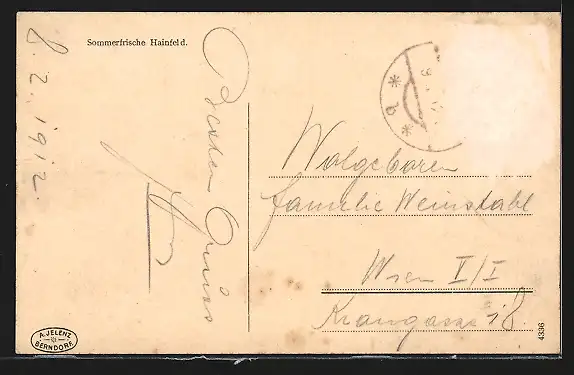 Sommerfrische Hainfeld.
8. 2. 1912.
Besten Gruss
Wolgeboren
Familie Weinstabl
Wien V/I
Krongasse 18
A. JELENZ
BERNDORF
4336
* b *